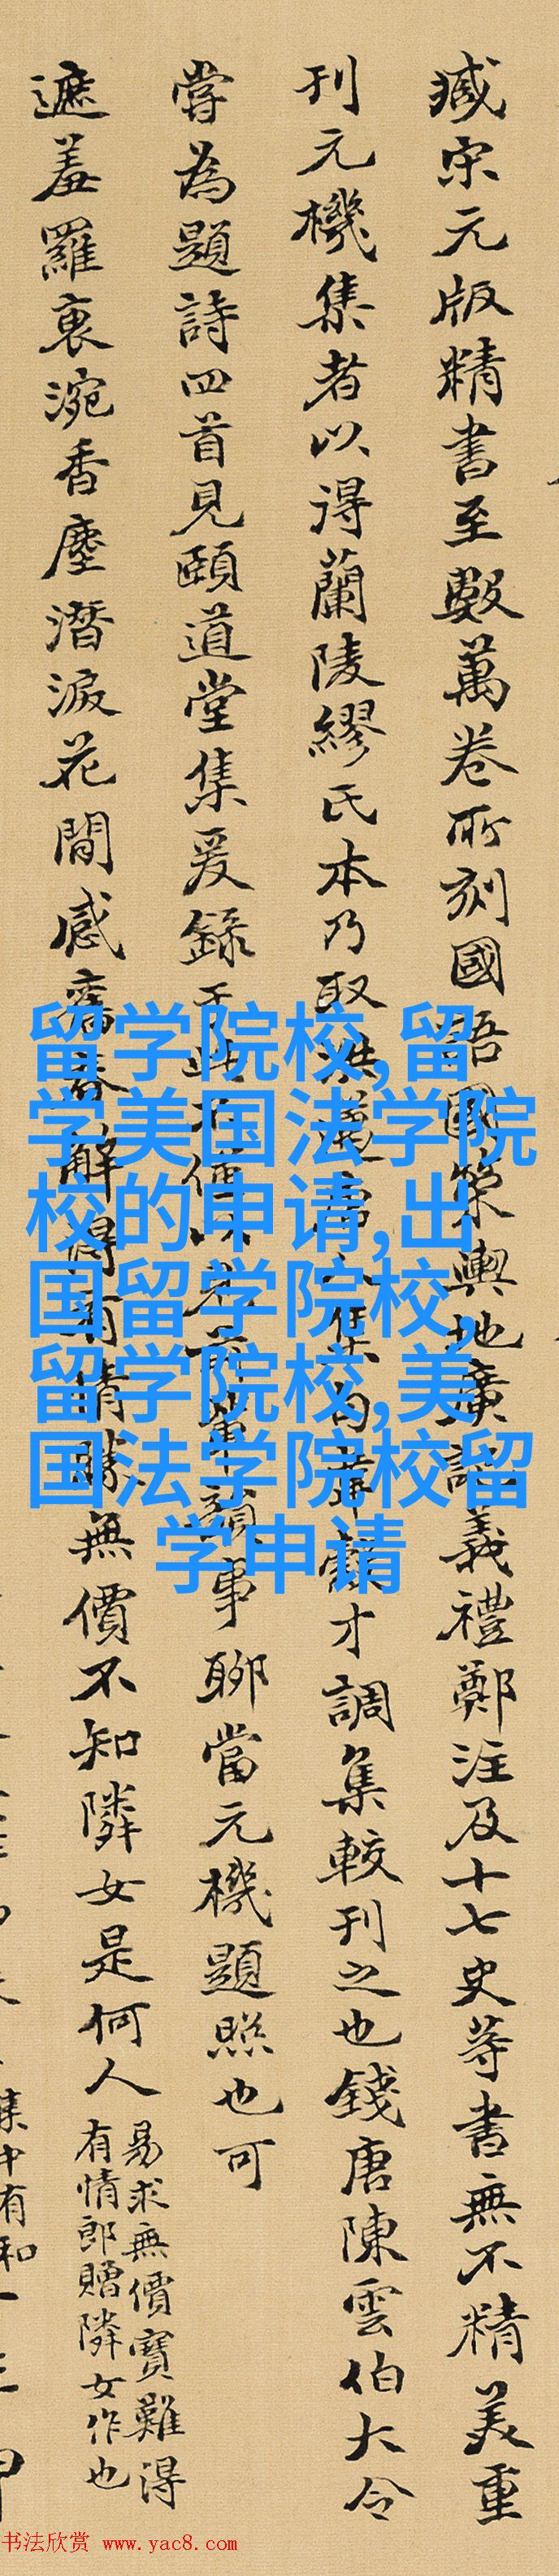 臧宋元版精書至數萬卷所刻國語國策輿地廣記義禮鄭注及十七史等書無不精美重
刊元機集者以得蘭陵繆氏本乃取才調集較刊之也錢唐陳雲伯大令
嘗為題詩四首見頤道堂集爰錄事聊當元機題照也可
遮羞羅裹涴香塵潛淚花間感舊春解得有情勝無價不知隣女是何人
易求無價寶難得
有情郎贈隣女作也
集中有和
留学院校,留
学美国法学院
校的申请,出
国留学院校,
留学院校,美
国法学院校留
学申请
书法欣赏 www.yac8.com